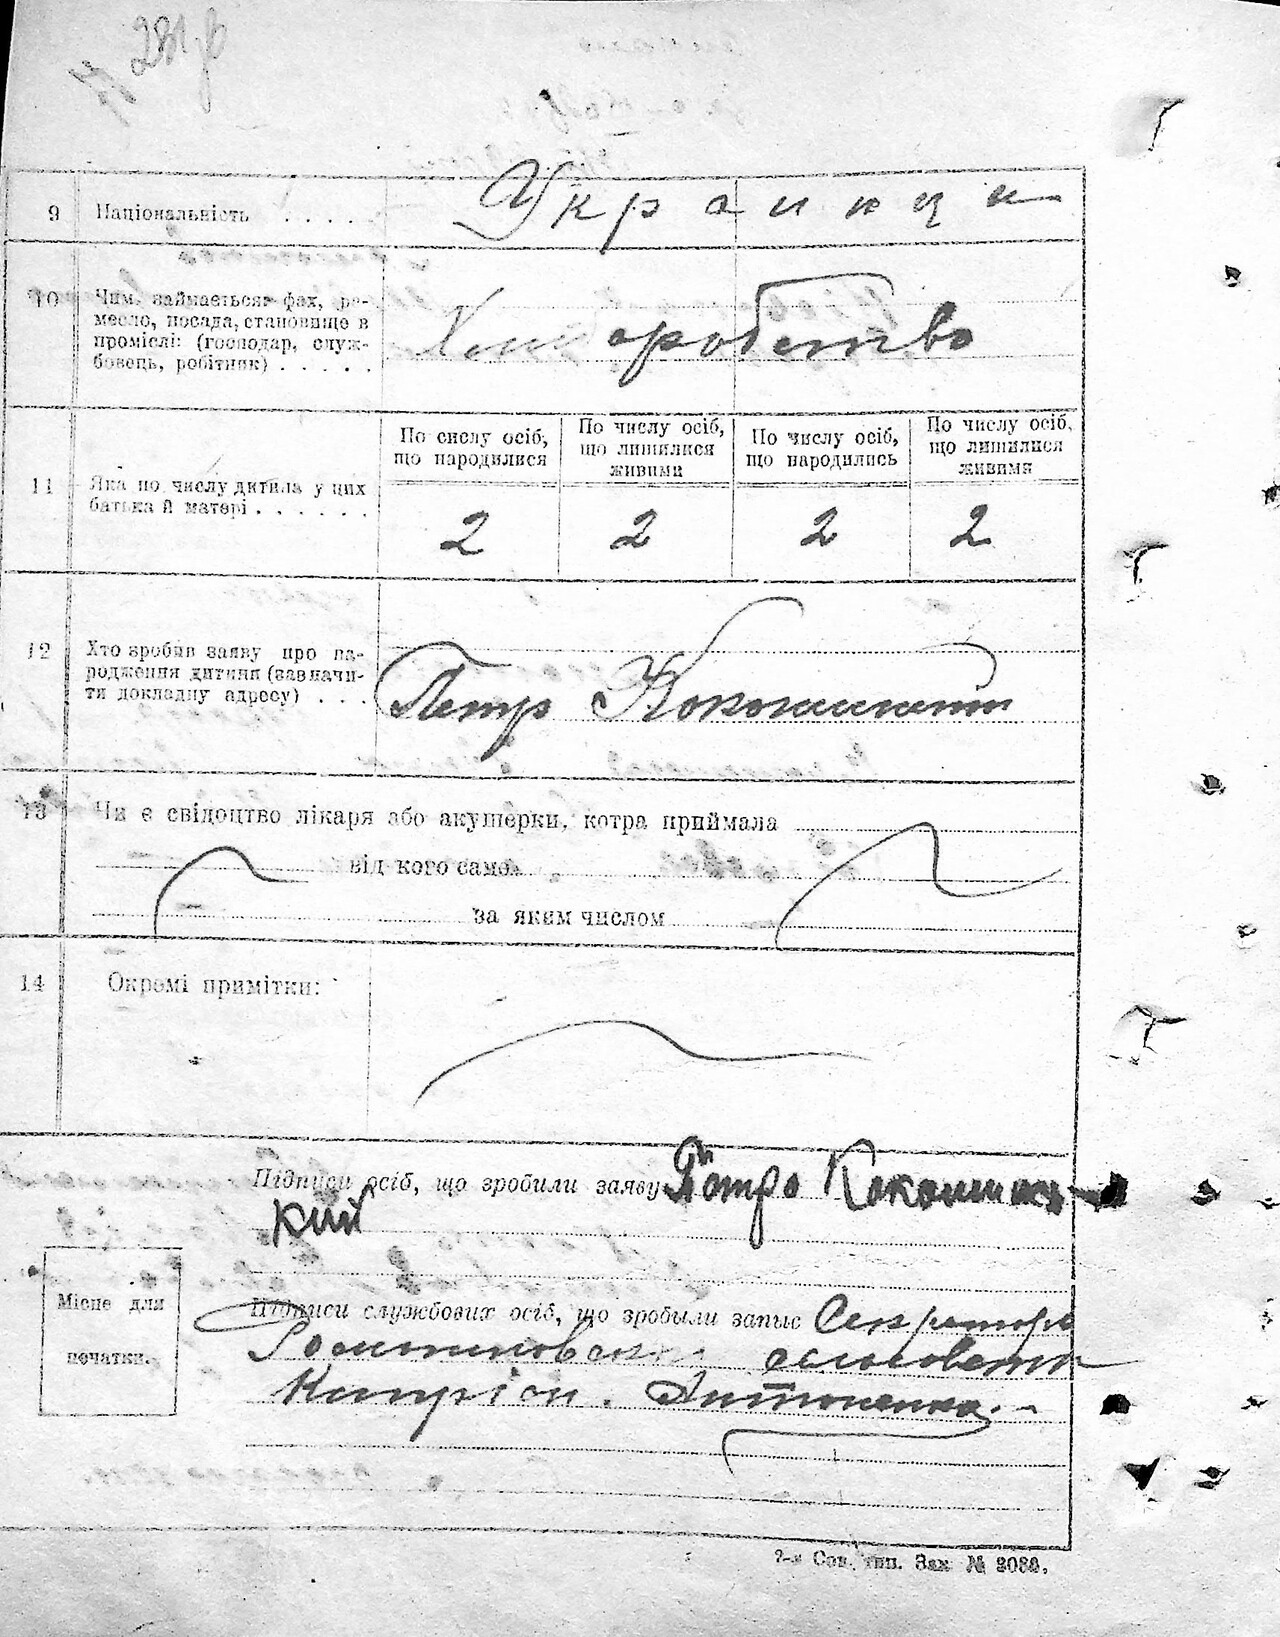 281
9 Національність . . . . Українци
10 Чим займається: фах, ре-
месло, посада, становище в
проміслі: (господар, служ-
бовець, робітник) . . . . . Хліборобство
11 Яка по числу дитина у цих
батька й матері . . . . . .
По числу осіб, що народилися По числу осіб, що лишилися живими По числу осіб, що народились По числу осіб, що лишилися живими
2 2 2 2
12 Хто зробив заяву про на-
родження дитини (зазначи-
ти докладну адресу) . . . Петр
13 Чи є свідоцтво лікаря або акушерки, котра приймала
від кого саме
за яким числом
14 Окремі примітки:
Підписи осіб, що зробили заяву Петро Кокошинсь
кий
Місце для
печатки.
Підписи службових осіб, що зробыли запыс Секретарь
сельсовета
Антоненко.
2-я Сов. тип. Зак. №